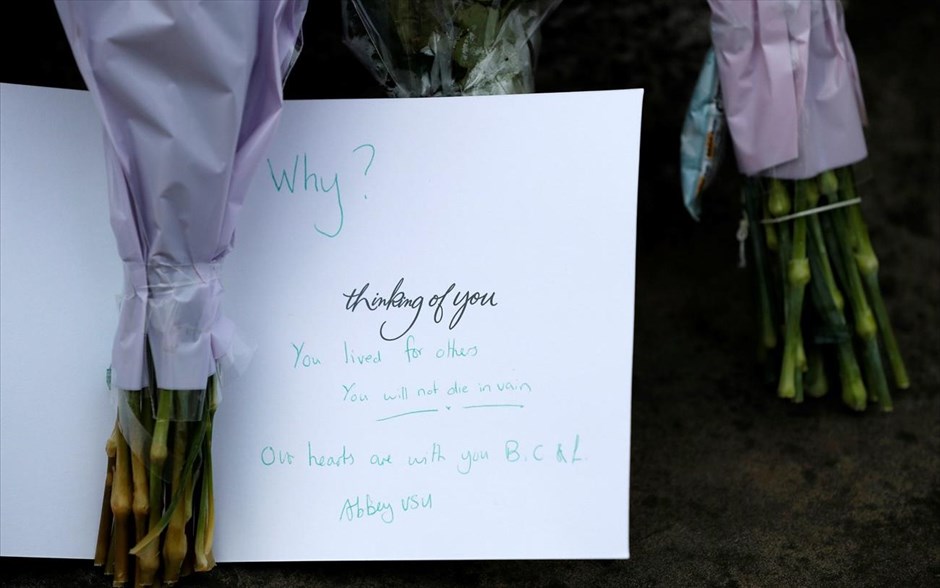 Why?
thinking of you
You lived for others
You will not die in vain
Our hearts are with you B.C & L
Abbey VSU